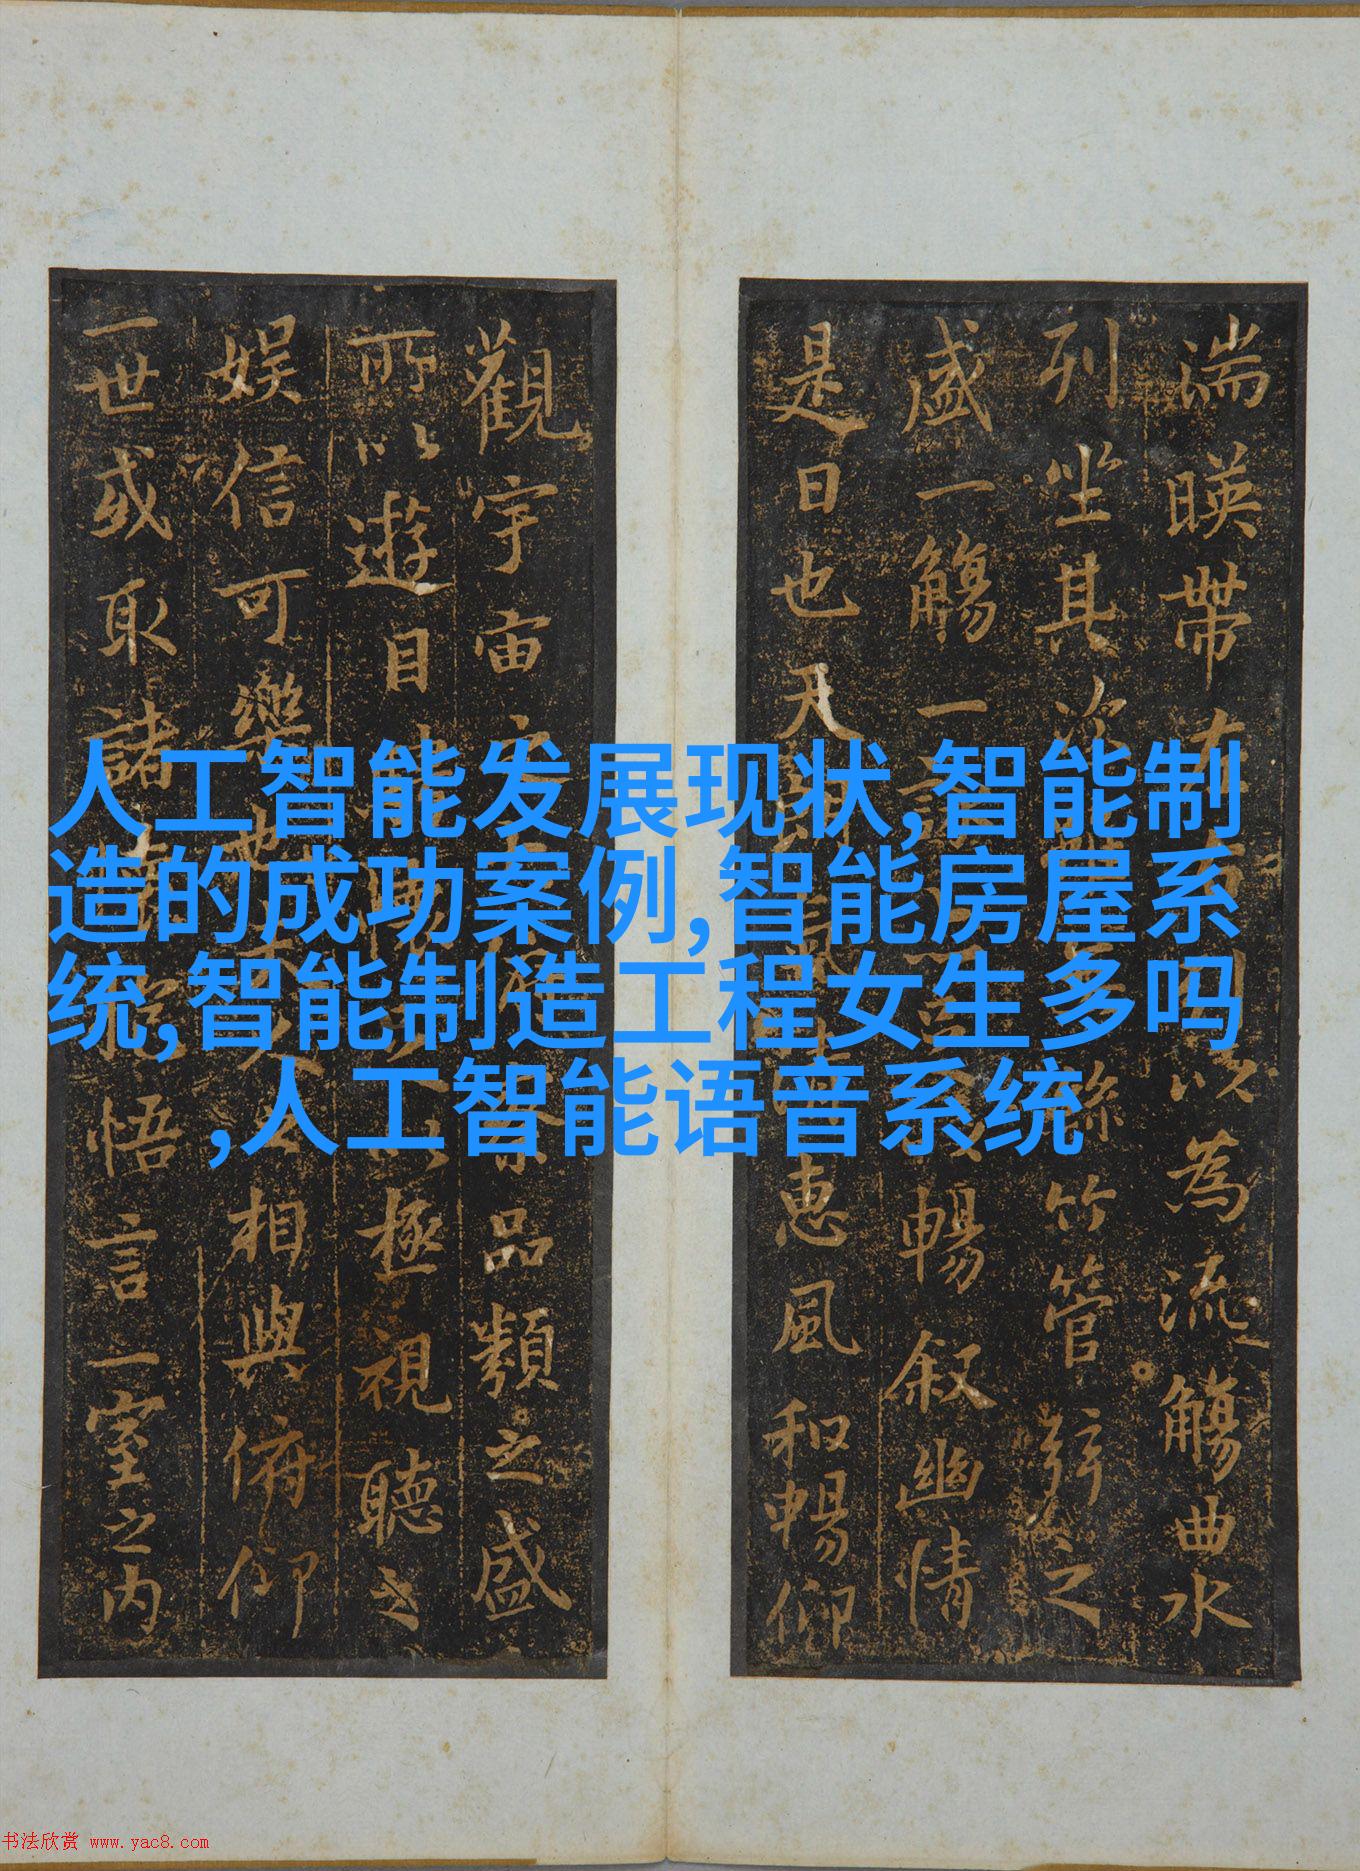 湍暎帶左右以為流觴曲水
列坐其次絲竹管弦之
盛一觴一詠暢叙幽情
是日也天朗惠風和暢仰
觀宇宙之品類之盛
所以遊目以極視聽之
娛信可樂也相與俯仰
一世或取諸悟言一室之内
人工智能发展现状,智能制
造的成功案例,智能房屋系
统,智能制造工程女生多吗
,人工智能语音系统
书法欣赏 www.yac8.com